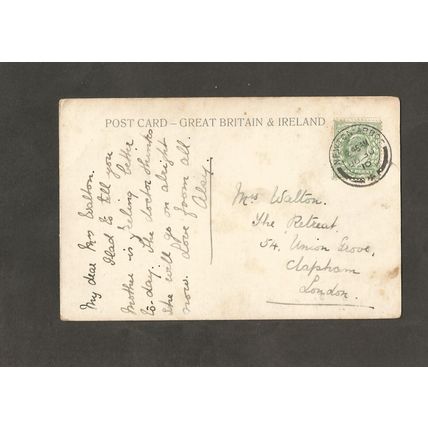 POST CARD – GREAT BRITAIN & IRELAND
My dear Mrs Walton.
Glad to tell you
Mother is feeling better
to-day. The doctor thinks
she will go on alright
now. Love from all.
Mrs Walton.
The Retreat
54. Union Grove,
Clapham
London.